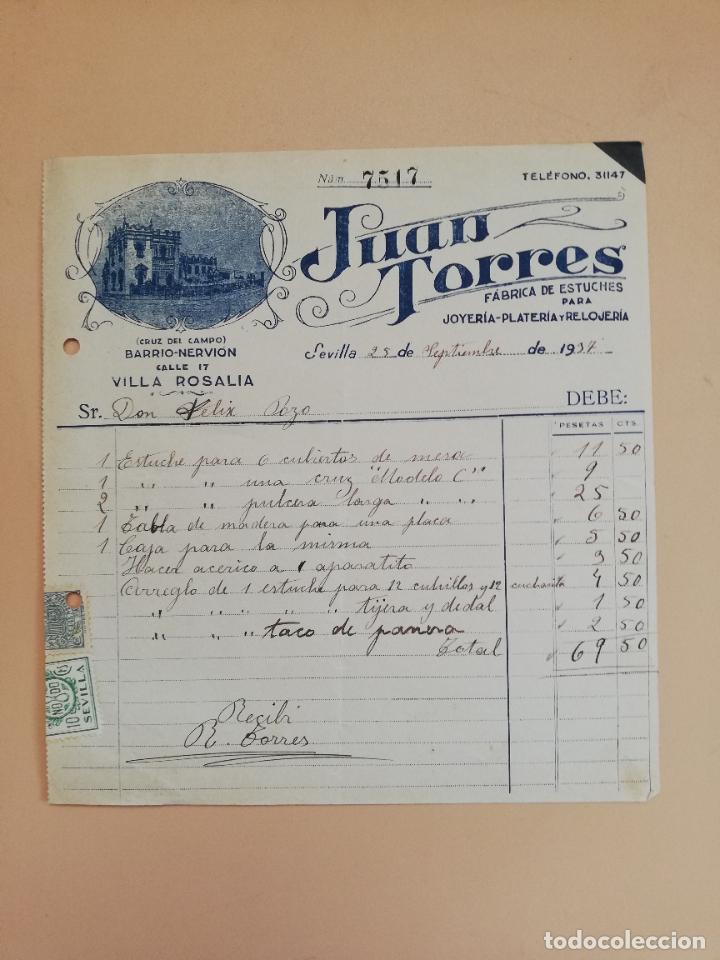 Núm. 7517
TELÉFONO, 31147
Juan
Torres
FÁBRICA DE ESTUCHES
PARA
JOYERÍA-PLATERÍA Y RELOJERÍA
(CRUZ DEL CAMPO)
BARRIO-NERVIÓN
CALLE 17
VILLA ROSALIA
Sevilla 25 de Septiembre de 1934
Sr. Don Félix Pozo DEBE:
PESETAS CTS.
1 Estuche para 6 cubiertos de mesa 11 50
1 " " una cruz "Modelo C" 9
2 " " pulcera larga " " 25
1 Tabla de madera para una placa 6 50
1 Caja para la misma 5 50
Hacer acerico a 1 aparatito 3 50
Arreglo de 1 estuche para 12 cuhillos y 12 cucharita 4 50
" " " " " tijera y dedal 1 50
" " " taco de panera 2 50
Total 69 50
Recibi
R. Torres
NO8DO
10
SEVILLA
todocoleccion
todocoleccion.net